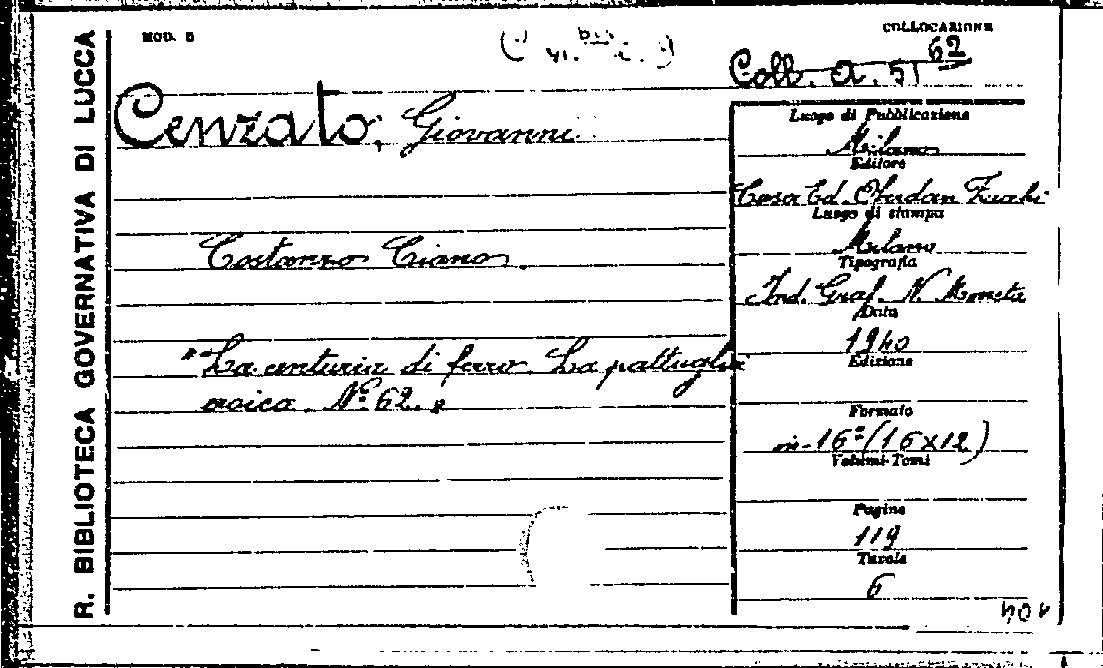 R. BIBLIOTECA GOVERNATIVA DI LUCCA
MOD. 5
COLLOCAZIONE
Coll. A. 51 62
Cenzato, Giovanni
Costanzo Ciano.
"La centuria di ferro. La pattuglia
eroica. Nº 62."
Luogo di Pubblicazione
Milano
Editore
Casa Ed. Oberdan Zucchi
Luogo di stampa
Milano
Tipografia
Ind. Graf. N. Moneta
Data
1940
Edizione
Formato
in-16º (16x12)
Volumi-Tomi
Pagine
119
Tavole
6